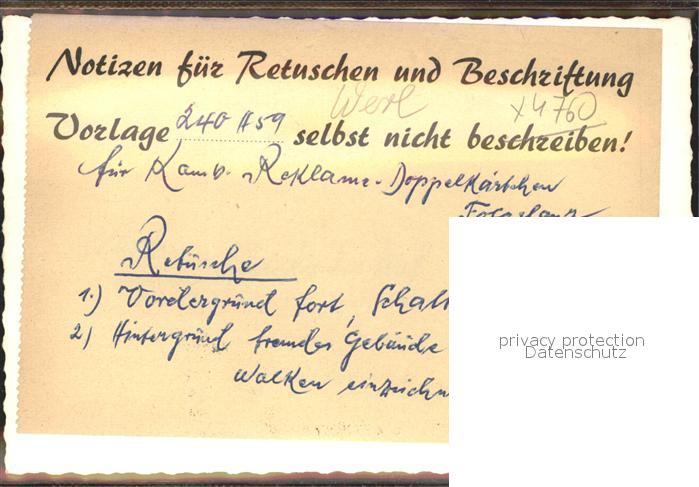 Notizen für Retuschen und Beschriftung
Werl x4760
Vorlage 240 A59 selbst nicht beschreiben!
für Komb. Reklame-Doppelkärtchen
Retusche
1.) Vordergrund fort, Schalt
2) Hintergrund fremdes Gebäude
Wolken einzeichn
privacy protection
Datenschutz